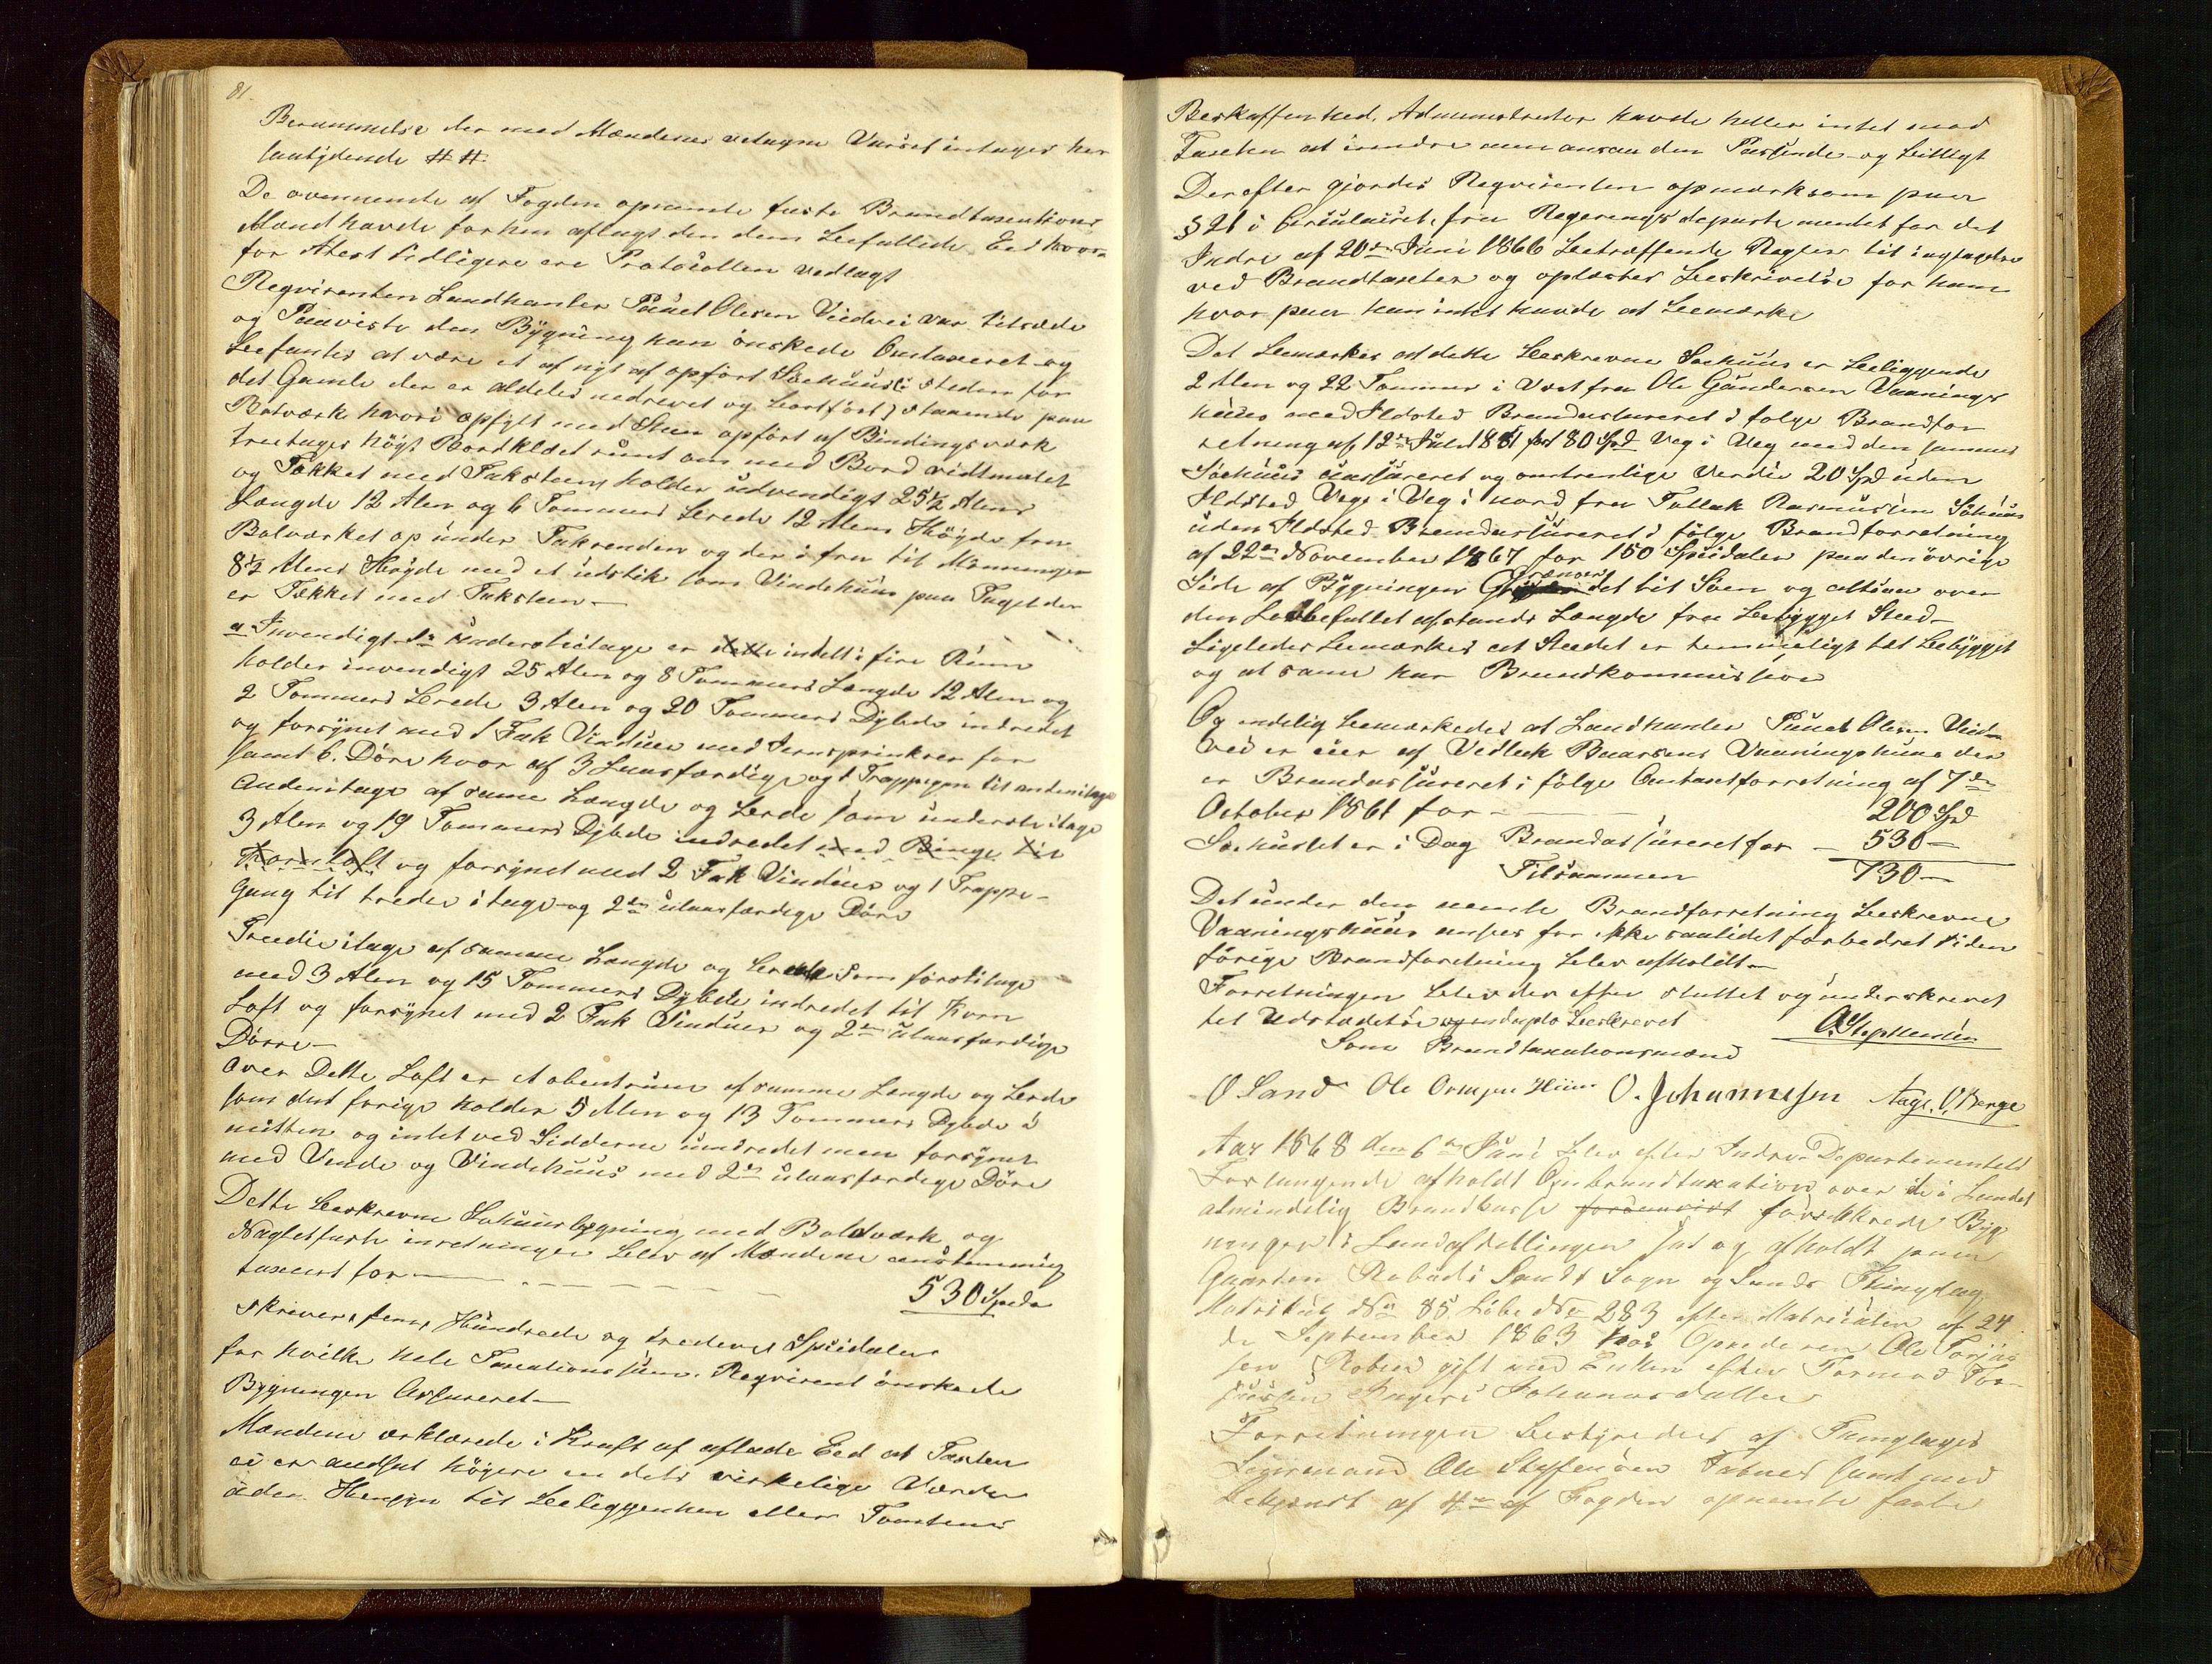 81.
Berammelse der med Mændenes vedtagne Varsel indtages her
saalydende ##.
De ovennevnte af Fogden opnævnte faste Brandtaxations
Mænd havde forhen aflagt den dem befallede Eed hvor
for Atest tidligere ere Protocollen vedlagt
Reqvirenten Landhanler Paael Olesen Viedvei var tilstæde
og Paaviste den Bygning han ønskede Omtaxeret og
befantes at være et af nyt af opført Søehuus i Steden for
det Gamle der er aldeles nedrevet og bortført, staaende paa
Bolværk hvori opfylt med Steen opført af Bindingsværk
tre etager høgt Bordklædt runt om med Bord vidtmalet
og Tækket med Taksteen, holder udvendigt 25½ Alens
Længde 12 Alen og 6 Tommers Brede 12 Alens Høyde fra
Bolværket op under Takrenden og der i fra til Mønningen
8½ Alens Høyde med et udstik som Vindehuus paa Taget der
er Tækket med Taksteen –
a Invendigt 1ste understeetage er dette indelt i fire Rum
holder invendigt 25 Alen og 8 Tommers Længde 12 Alen og
2 Tommers Brede 3 Alen og 20 Tommers Dybde indredet
og forsynet med 1 Fak Vinduer med Jernsprinkver for
samt 6. Døre hvor af 3 Laasfærdige og 1 Trappegan til andenetage
Andenetage af samme Længde og Brede som understeetage
3 Alen og 19 Tommers Dybde indredet med Binge til
Kornloft og forsynet med 2 Fak Vinduer og 1 Trappe-
Gang til tredie etage og 2de ulaasfærdige Døre
Treedie etage af samme Længde og Brede som førsteetage
med 3 Alen og 15 Tommers Dybde indredet til Korn
Loft og forsynet med 2 Fak Vinduer og 2de ulaasfærdige
Dørre –
Over Dette Loft er et abentrum af samme Længde og Brede
som det forige holder 5 Alen og 13 Tommers Dybde i
mitten og intet ved Sidderne uindredet men forsynet
med Vinde og Vindehuus med 2de ulaasfærdige Døre
Dette beskrevne Søhuusbygning med Boldværk og
Nagletfaste inretninger blev af Mændene eenstemmig
taxeert for – – – – – 530 Spedr
skriver, fem, Hundrede og tredeve Speidaler
for hvilke hele Taxationssum Reqvirent ønskede
Bygningen Assureret –
Mændene erklærede i Kraft af aflade Eed at Taxten
ei er andsat høyere en dets virkelige Værdi
uden Hensyn til Beliggenhen eller Tomtens
Beskaffenhed. Administrator havde heller intet mod
Taxten at eendre men ansaa den Passende og billigt
Derefter gjordes Reqvirenten opmærksom paa
§ 21 i Cirkulæret fra Regerings departementet for det
Indre af 20de Juni 1866 betræffende Regler til iagtagelse
ved Brandtaxter og oplæstes beskrivelse for ham
hvor paa han intet havde at bemærke
Det bemærkes at dette beskrevne Søehuus er beliggende
2 Alen og 22 Tommer i Væst fra Ole Gundersen Vaanings
huus med Ildsted Brandassureret i følge Brandfor
retning af 12te Juli 1851 for 80 Spd Veg i Veg med den sammes
Søehuus uassureret og omtrentlige Verdie 20 Spd uden
Ildsted Veg i Veg i nord fra Tollak Rasmussen Søhuus
uden Ildsted Brandassureret i følge Brandforretning
af 22de November 1867 for 150 Speidaler paa den øvrige
Side af Bygningen Grænser det til Søen og altsaa over
den Lovbefallet afstands Længde fra bebygget Sted –
Ligeledes bemærkes at Stedet er temmeligt tæt bebygget
og at samme har Brandkommission
Og endelig bemærkedes at Landhanler Paael Olesen Vied-
vei er eier af Vedlek Baarsens Vaaningshuus der
er Brandassureret i følge Omtaxtforretning af 7de
October 1861 for – – – 200 Spd
Søehuuset er i Dag Brandassureret for – 530 –
Tilsammen 730 –
Det under den nevnte Brandforretning beskrevne
Vaaningshuus ansees for ikke saaledet forbedret siden
forige Brandforretning blev afholdt –
Forretningen blev der efter sluttet og underskrevet
til Udstædelse og induplo beskrevet O. Steffensen
Som Brandtaxationsmænd
O Sand Ole Hiim O. Johannesen Aage. O Berge
Aar 1868 den 6te Juni blev efter Indre Departementets
Forlangende afholdt Ombrandtaxation over de i Landet
almindelig Brandkasse fordenvist forsikrede Byg
ninger i Landafdellingen sat og afholdt paa
Gaarden Røbud i Sands Sogn og Sands Thinglag
Matrikul No 85 Løbe No 283 efter Matriculen af 24
de September 1863 hos Opsidderen Ole Torjus
sen Røbud gift med Enken efter Tormod Tor
jussen Ingeri Johannesdatter
Forretningen bestyredes af Thinglagets
Lensmand Ole Steffensen samt med
bekjendt af 4re af Fogden opnævnte faste